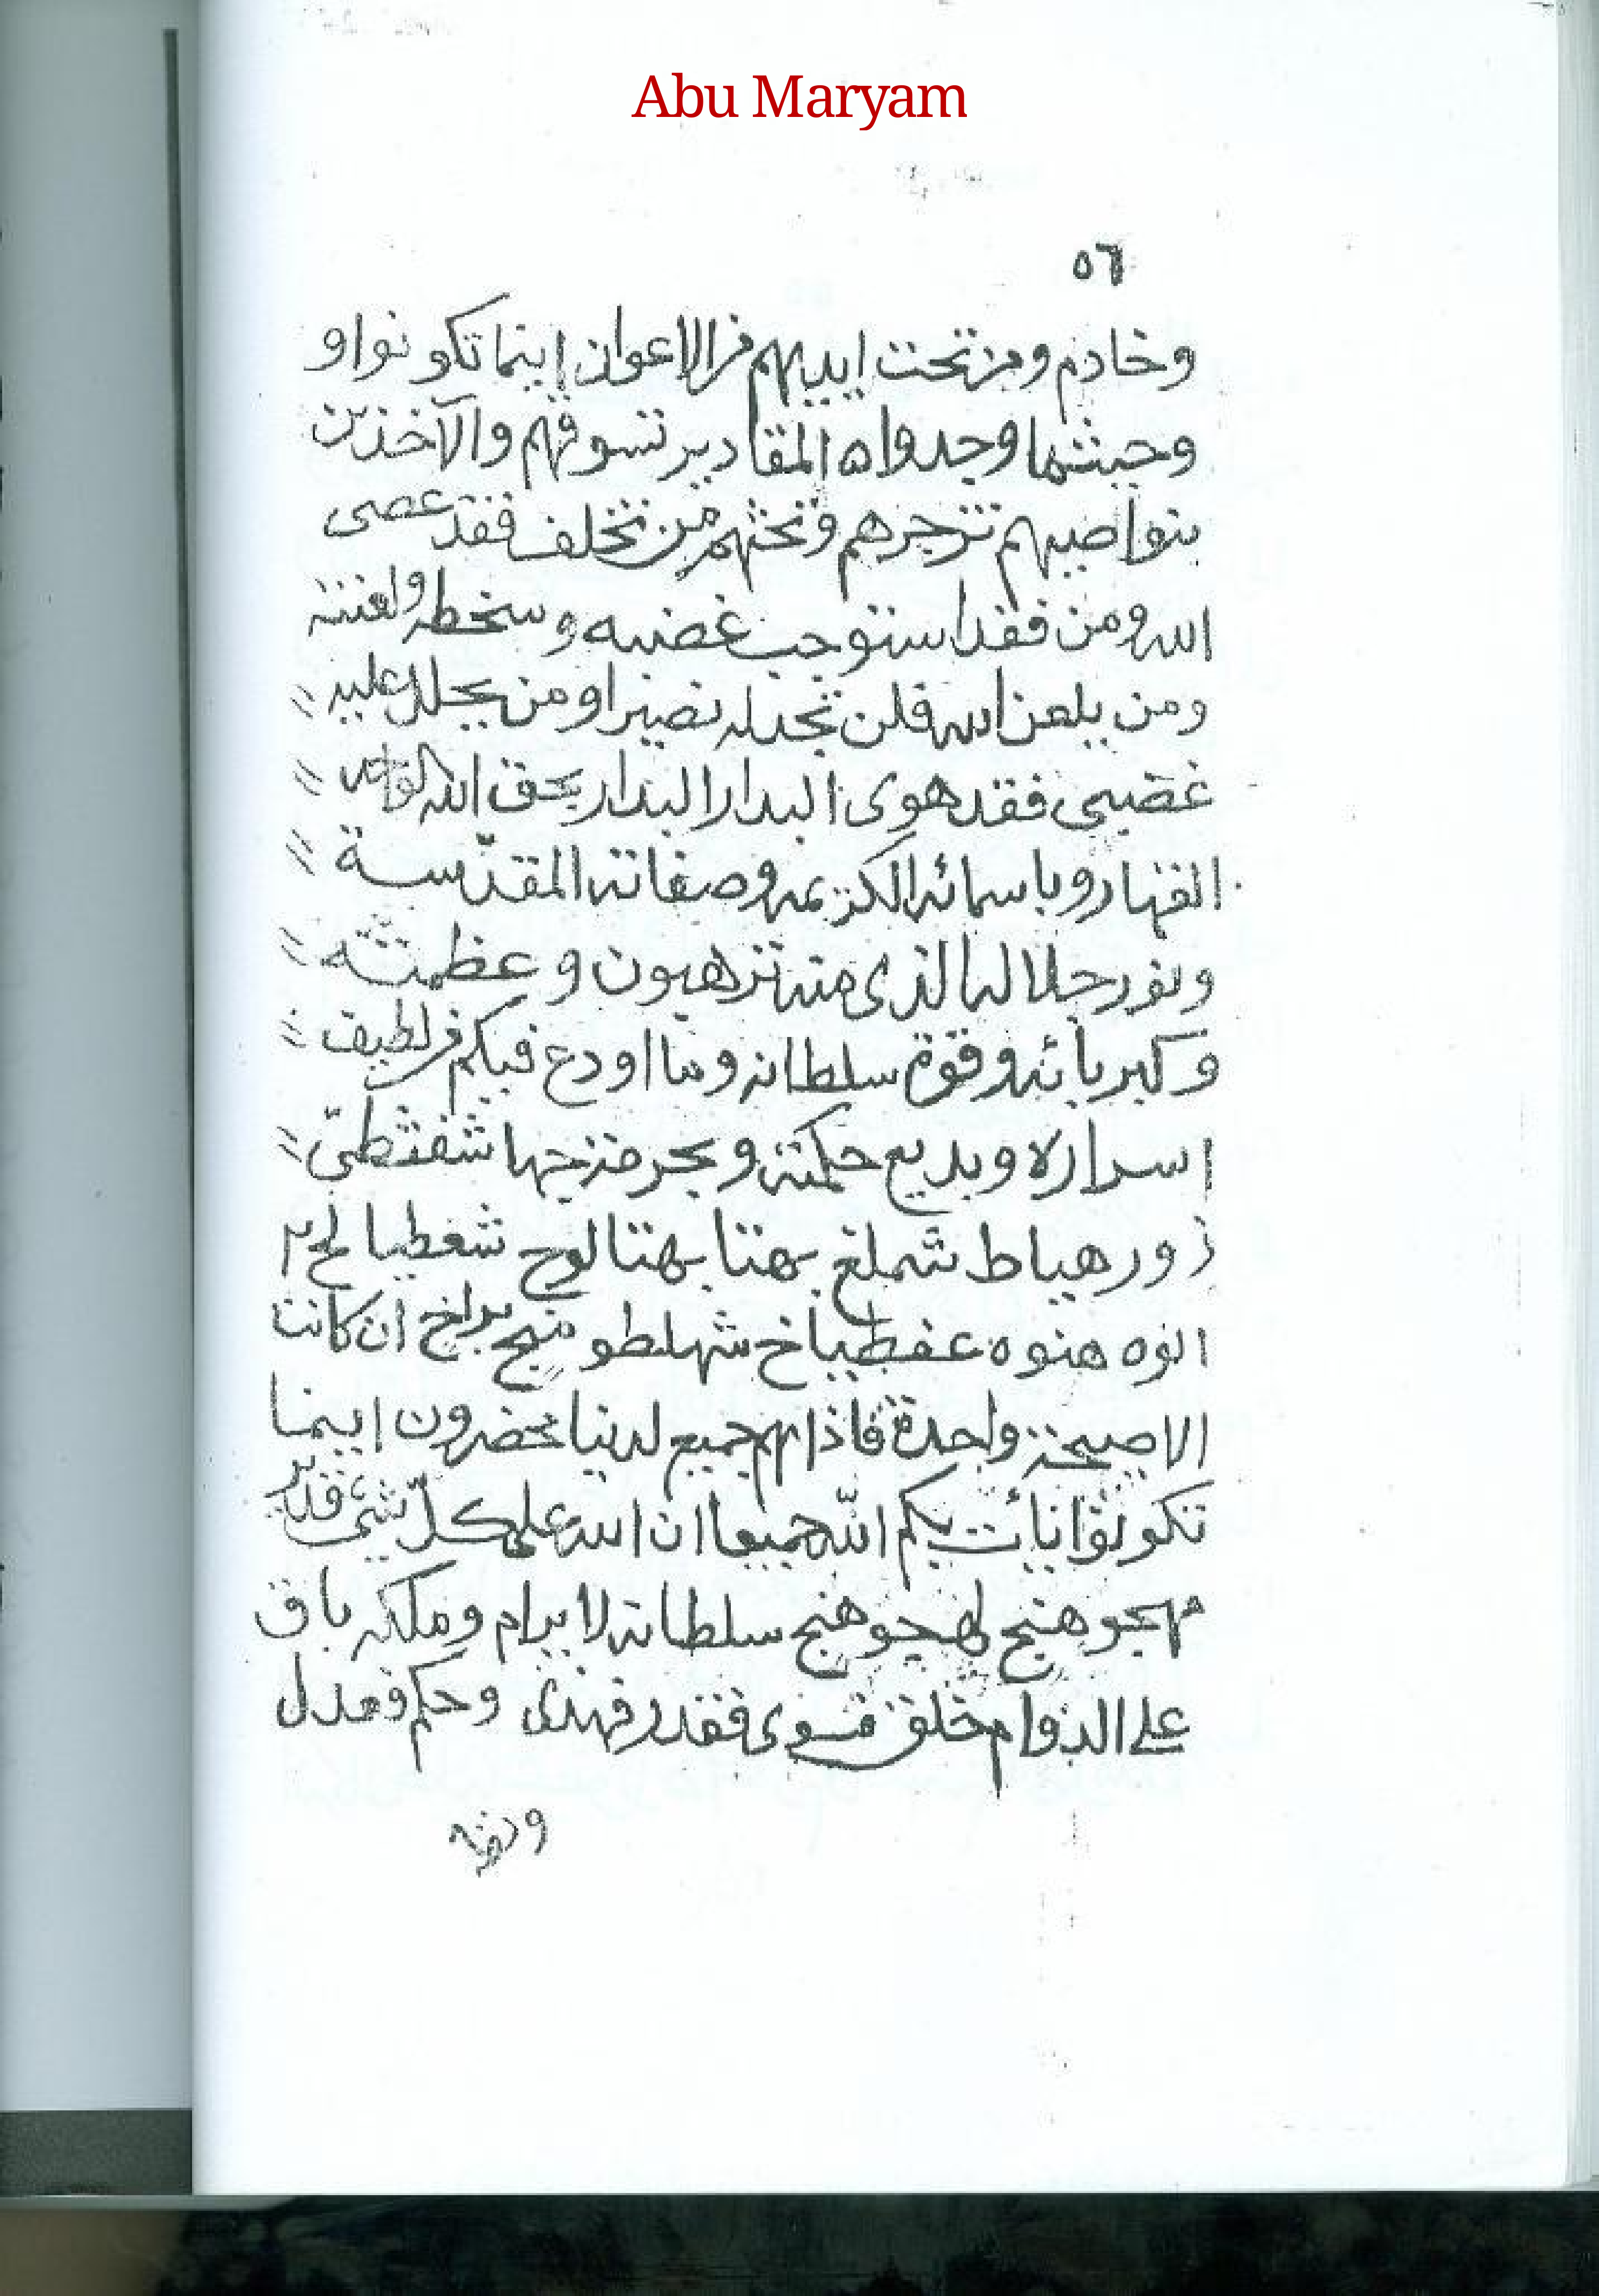 Abu Maryam
٥٦
وخادم ومن تحت ايديهم من الاعوان اينما تكونوا و
وحيثما وجدوا ه المقادير تسوقهم والآخذين
بنواصيهم تزجرهم وتحثهم من تخلف فقد عصى
الله ومن فقد استوجب غضبه وسخطه ولعنته
ومن يلعن الله فلن تجد له نصيرا ومن يحلل عليه
غضبي فقد هوى البدار البدار بحق الله
القهار وباسمائه الكريمه وصفاته المقدّسة
وبنور جلاله الذي منه ترهبون وعظمته
وكبريائه وقوة سلطانه وما اودع فيكم من لطيف
اسراره وبديع حكمته وبحر مزجها
زور هياط شملخ بهتا بهتا لوح شغطيا لح ٢
انوه هنوه عفطياخ شهلطو براخ ان كانت
الا صيحة واحدة فاذا هم جميع لدينا محضرون اينما
تكونوا يأت بكم الله جميعا ان الله على كلّ شئ قدير
مهجوهنج لهجوهنج سلطانه لا يرام وملكه باق
على الدوام خلق فسوى فقدر فهدى وحكم فعدل